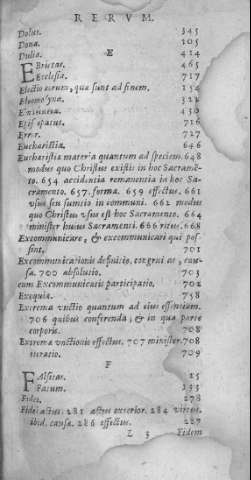 RERVM.
Dolus. 345
Dona. 105
Dulia. 414
E
EBrietas. 465
Ecclesia. 717
Electio rerum, quæ sunt ad finem. 154
Eleemosyna. 328
450
Episcopatus. 716
Error. 727
Eucharistia. 646
Eucharistiæ materia quantum ad speciem. 648
modus quo Christus existit in hoc Sacramē-
to. 654 accidentia remanentia in hoc Sa-
cramento. 657. forma. 659 effectus. 661
vsus seu sumtio in communi. 662 modus
quo Christus vsus est hoc Sacramento. 664
minister huius Sacramenti. 666 ritus. 668
Excommunicare, & excommunicari qui pos-
sint. 701
Excommunicationis definitio, congrui as, cau-
sa. 700 absolutio. 703
cum Excommunicatis participatio. 702
Exequiæ. 758
Extremæ vnctio quantum ad eius essentiam.
706 quibus conferenda, & in qua parte
corporis. 708
Extremæ vnctionis effectus. 707 minister. 708
iteratio. 709
F
FAlsitas. 25
Fatum. 193
Fides. 278
Fidei actus. 281 actus exterior. 284 virtus.
ibid. causa. 286 effectus. 287
Z 3 Fidem